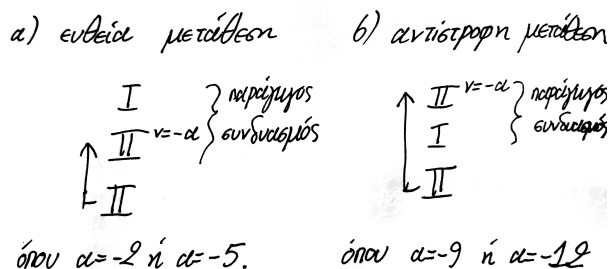 α) ευθεία μετάθεση
I
II ν=-α
II
παράγωγος
συνδυασμός
όπου α=-2 ή α=-5.
β) αντίστροφη μετάθεση
II ν=-α
I
II
παράγωγος
συνδυασμός
όπου α=-9 ή α=-12